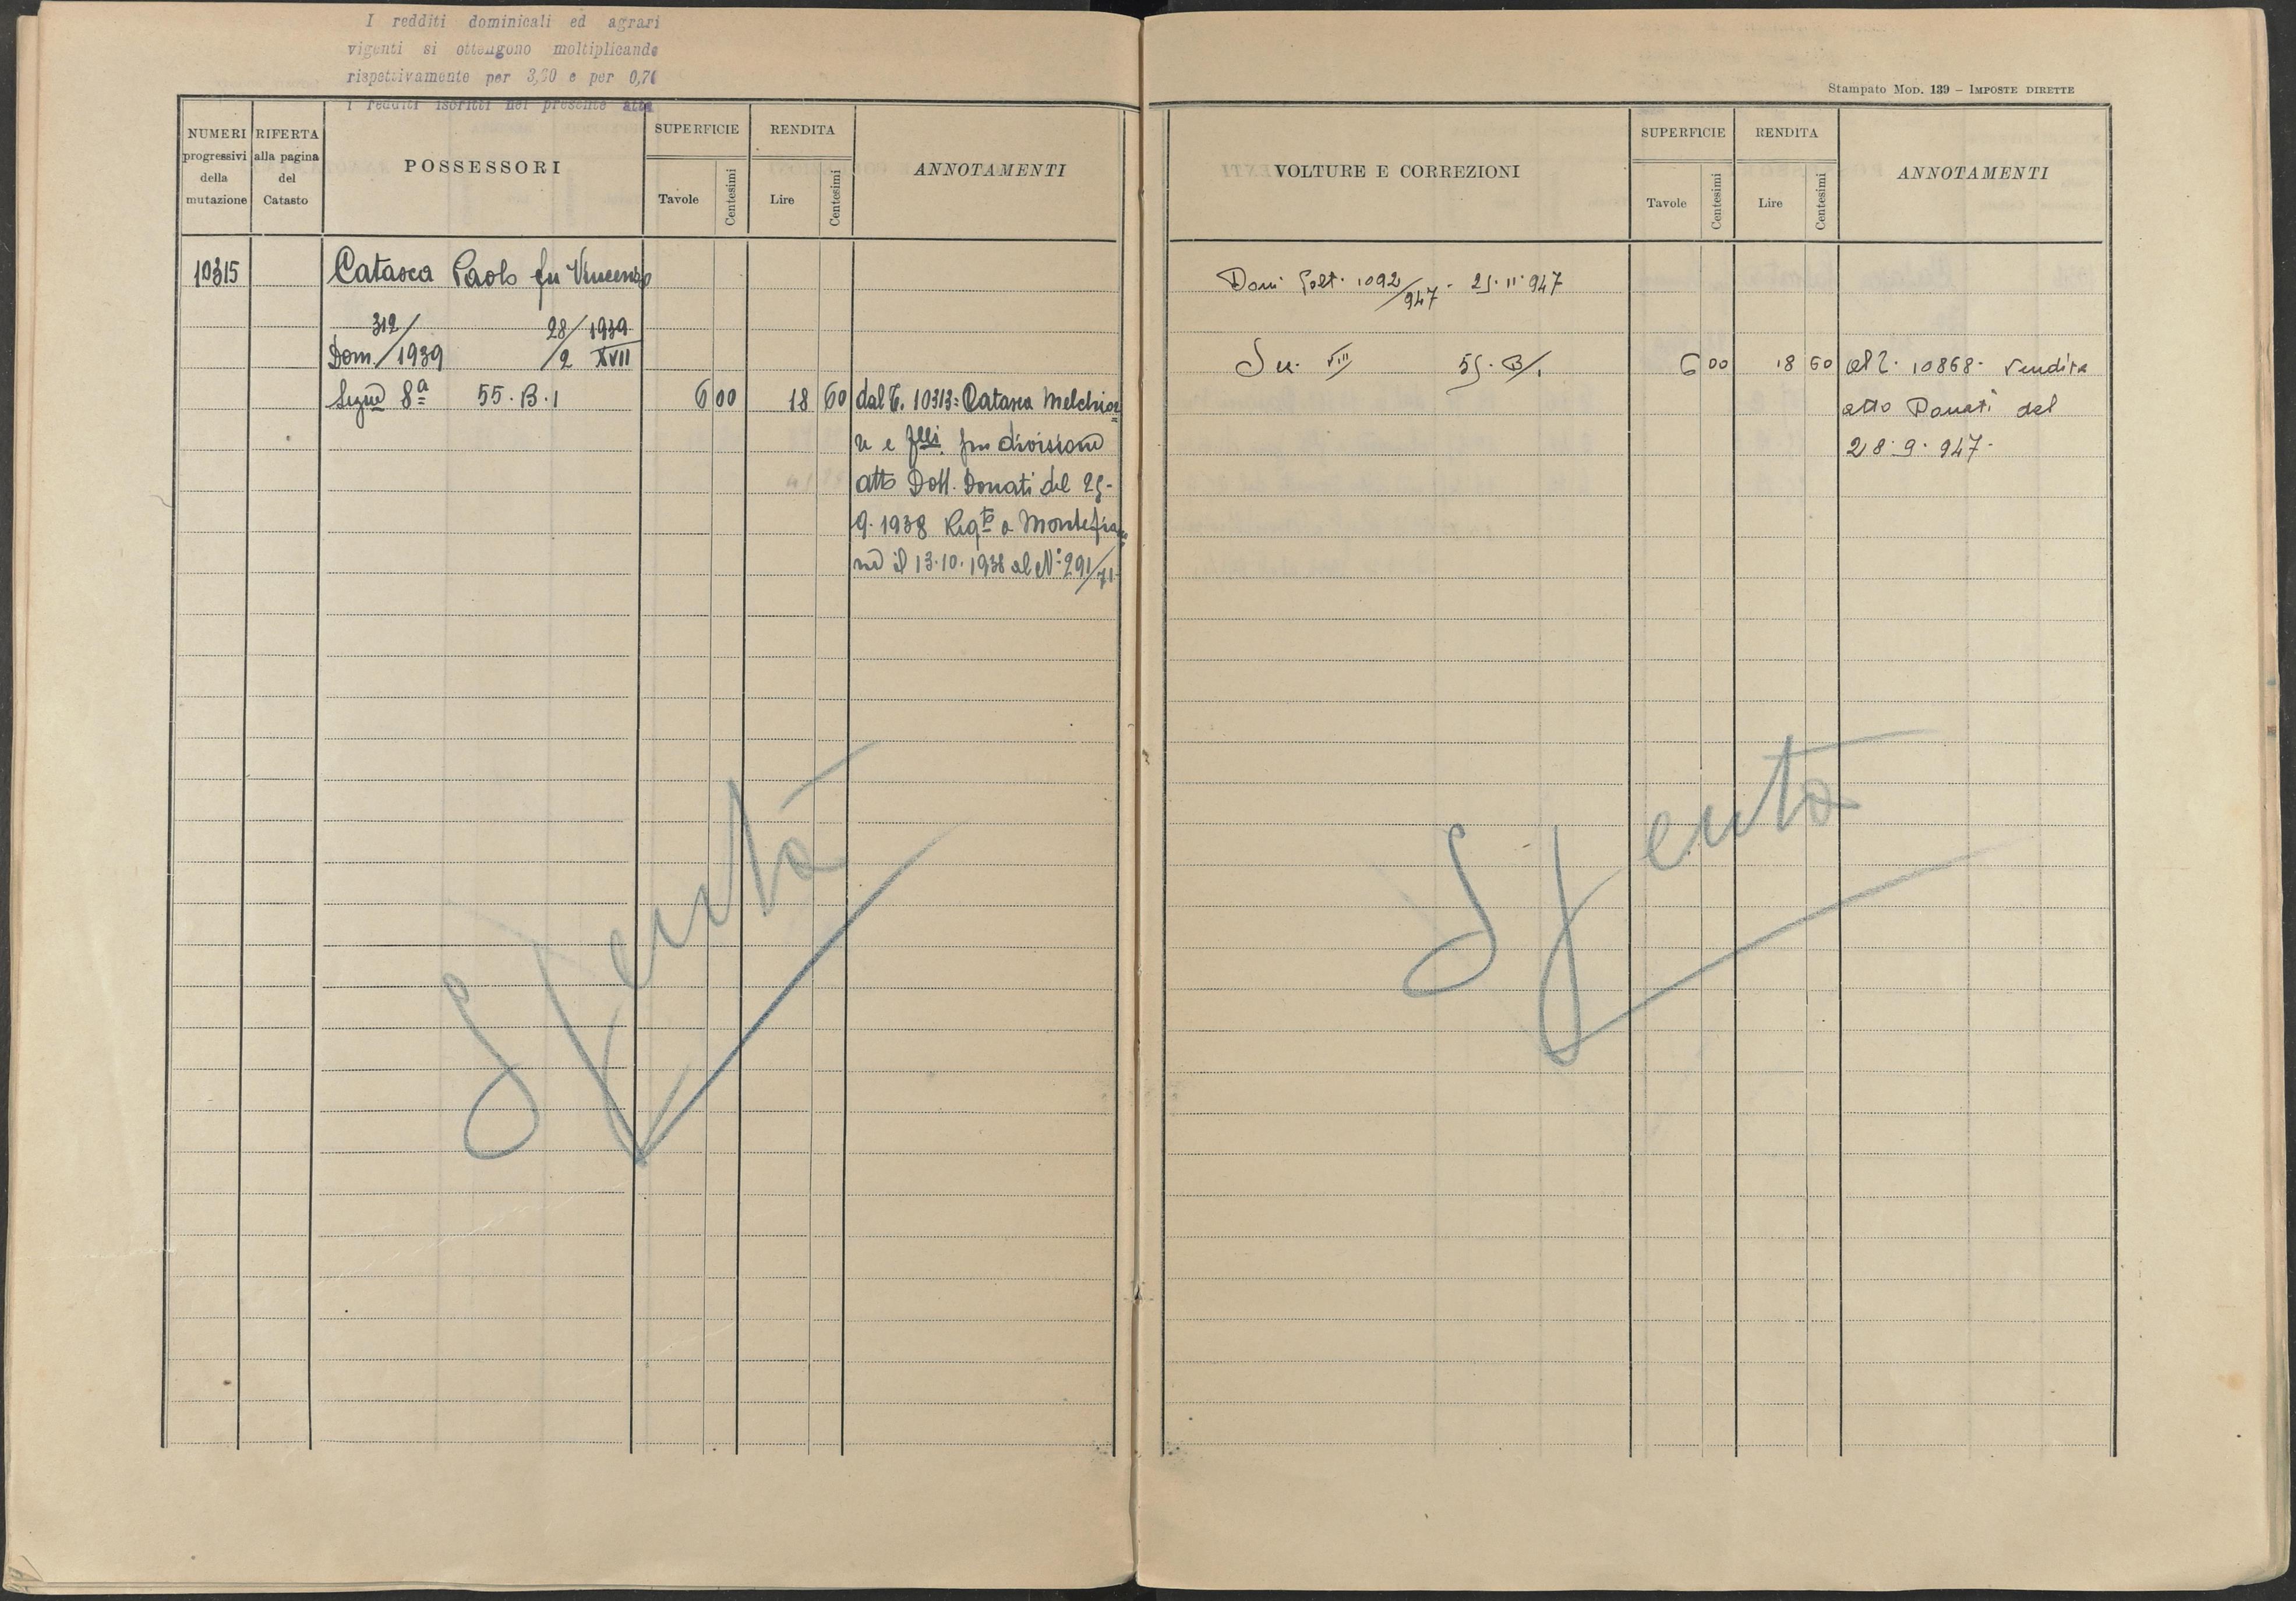 I redditi dominicali ed agrari
vigenti si ottengono moltiplicando
rispettivamente per 3,60 e per 0,70
i redditi iscritti nel presente atto
NUMERI
progressivi
della
mutazione
RIFERTA
alla pagina
del
Catasto
POSSESSORI
SUPERFICIE
Tavole
Centesimi
RENDITA
Lire
Centesimi
ANNOTAMENTI
10315
Catasca Paolo fu Vincenzo
312/ 28/ 1939
Dom. /1939 /2 XVII
Segue 8ª 55.B.1 6 00 18 60 dal T. 10313= Catasca Melchior
re e flli. per divisione
atto Dott. Donati del 25-
9.1938 Regto a Montefia
ne il 13.10.1938 al N° 291/71
Sfenta
Stampato Mod. 139 – IMPOSTE DIRETTE
VOLTURE E CORREZIONI
SUPERFICIE
Tavole
Centesimi
RENDITA
Lire
Centesimi
ANNOTAMENTI
Dom. Volt. 1092/947 - 25.11.947
Se. VIII 55.B/1 6 00 18 60 al T. 10868. Vendita
atto Donati del
28.9.947.
Sfenta